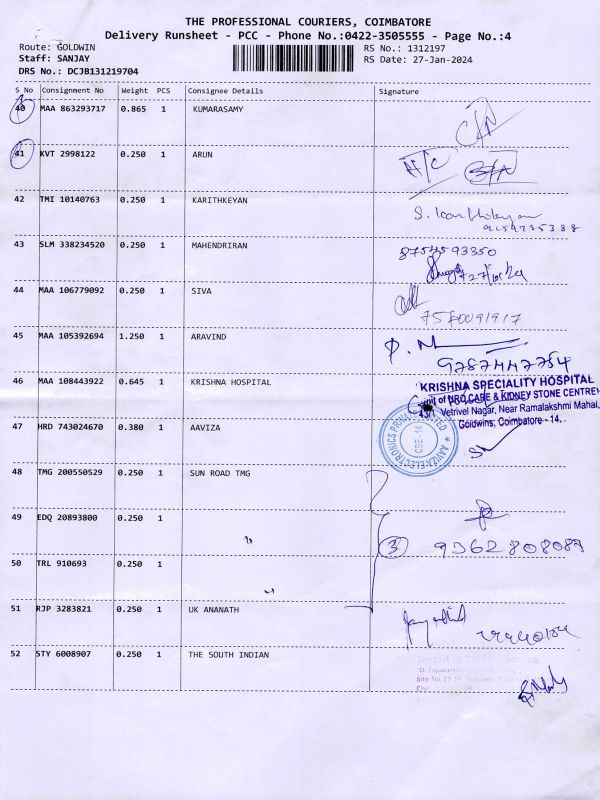 THE PROFESSIONAL COURIERS, COIMBATORE
Delivery Runsheet - PCC - Phone No.:0422-3505555 - Page No.:4
Route: GOLDWIN RS No.: 1312197
Staff: SANJAY RS Date: 27-Jan-2024
DRS No.: DCJB131219704
S No Consignment No Weight PCS Consignee Details Signature
40 MAA 863293717 0.865 1 KUMARASAMY
41 KVT 2998122 0.250 1 ARUN N/C
42 TMI 10140763 0.250 1 KARITHKEYAN
43 SLM 338234520 0.250 1 MAHENDRIRAN
44 MAA 106779092 0.250 1 SIVA
45 MAA 105392694 1.250 1 ARAVIND
9787447754
46 MAA 108443922 0.645 1 KRISHNA HOSPITAL KRISHNA SPECIALITY HOSPITAL
Unit of PRO CARE & KIDNEY STONE CENTRE
43/1, Vetrivel Nagar, Near Ramalakshmi Mahal,
Goldwins, Coimbatore - 14.
47 HRD 743024670 0.380 1 AAVIZA AAVIZA ELECTRONICS PRIVATE LIMITED CBE-14
48 TMG 200550529 0.250 1 SUN ROAD TMG
49 EDQ 20893800 0.250 1
3 9362808089
50 TRL 910693 0.250 1
51 RJP 3283821 0.250 1 UK ANANATH
52 STY 6008907 0.250 1 THE SOUTH INDIAN